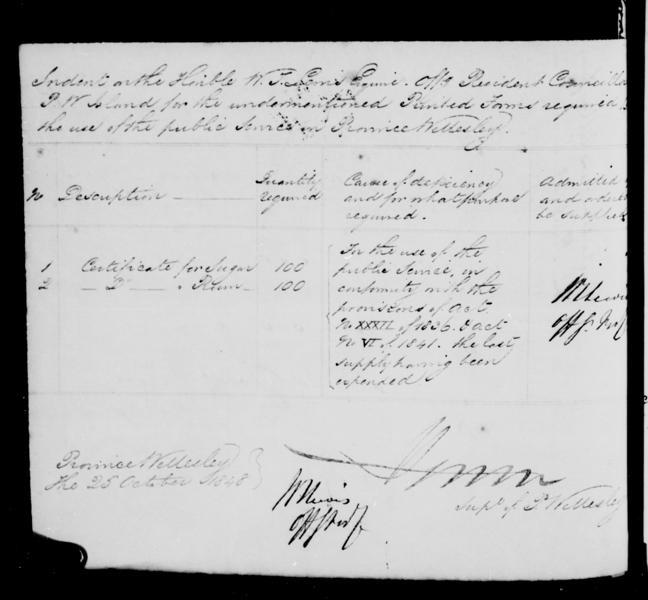 Indent on the Honble W. T. Lewis Esquire. Offg Resident Councillor
P. W Island, for the undermentioned Printed Forms required
the use of the public Service in Province Wellesley.
No Description Quantity required Cause of deficiency and for what purpose required. Admitted and ordered be supplied
1 Certificate for Sugar 100
2 — Do — " Rum — 100
For the use of the
public Service, in
conformity with the
provisions of Act
No XXXII of 1836. & Act
No VI of 1841. the last
supply having been
expended
WLewis
Province Wellesley
the 25 October 1848
WLewis
Supt of P. Wellesley